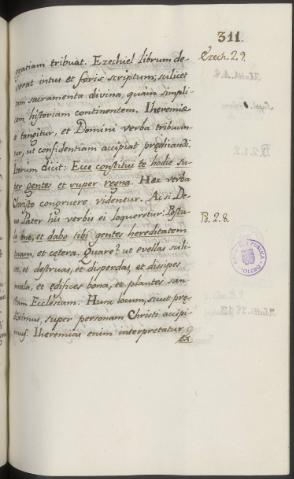 311.
gratiam tribuat. Ezechiel librum de-
vorat intus et foris scriptum; scilicet
tam sacramenta divina, quam simpli-
cem historiam continentem. Iheremiæ
os tangitur, et Domini verba tribuun-
tur, ut confidentiam accipiat prædicandi.
dicit: Ecce constitui te hodie su-
per gentes et super regna. Hæc verba
Christo congruere videntur. Ac si De-
us Pater his verbis ei loqueretur: Postu-
la a me, et dabo tibi gentes hereditatem
tuam, et cetera. Quare? ut evellas
et destruas, et disperdas, et dissipes
mala, et edifices bona, et plantes san-
ctam Ecclesiam. Hunc locum, sicut
diximus, super personam Christi accipi-
mus. Iheremias enim interpretatur
ex
Ezech. 2.9.
Ps. 2.8.